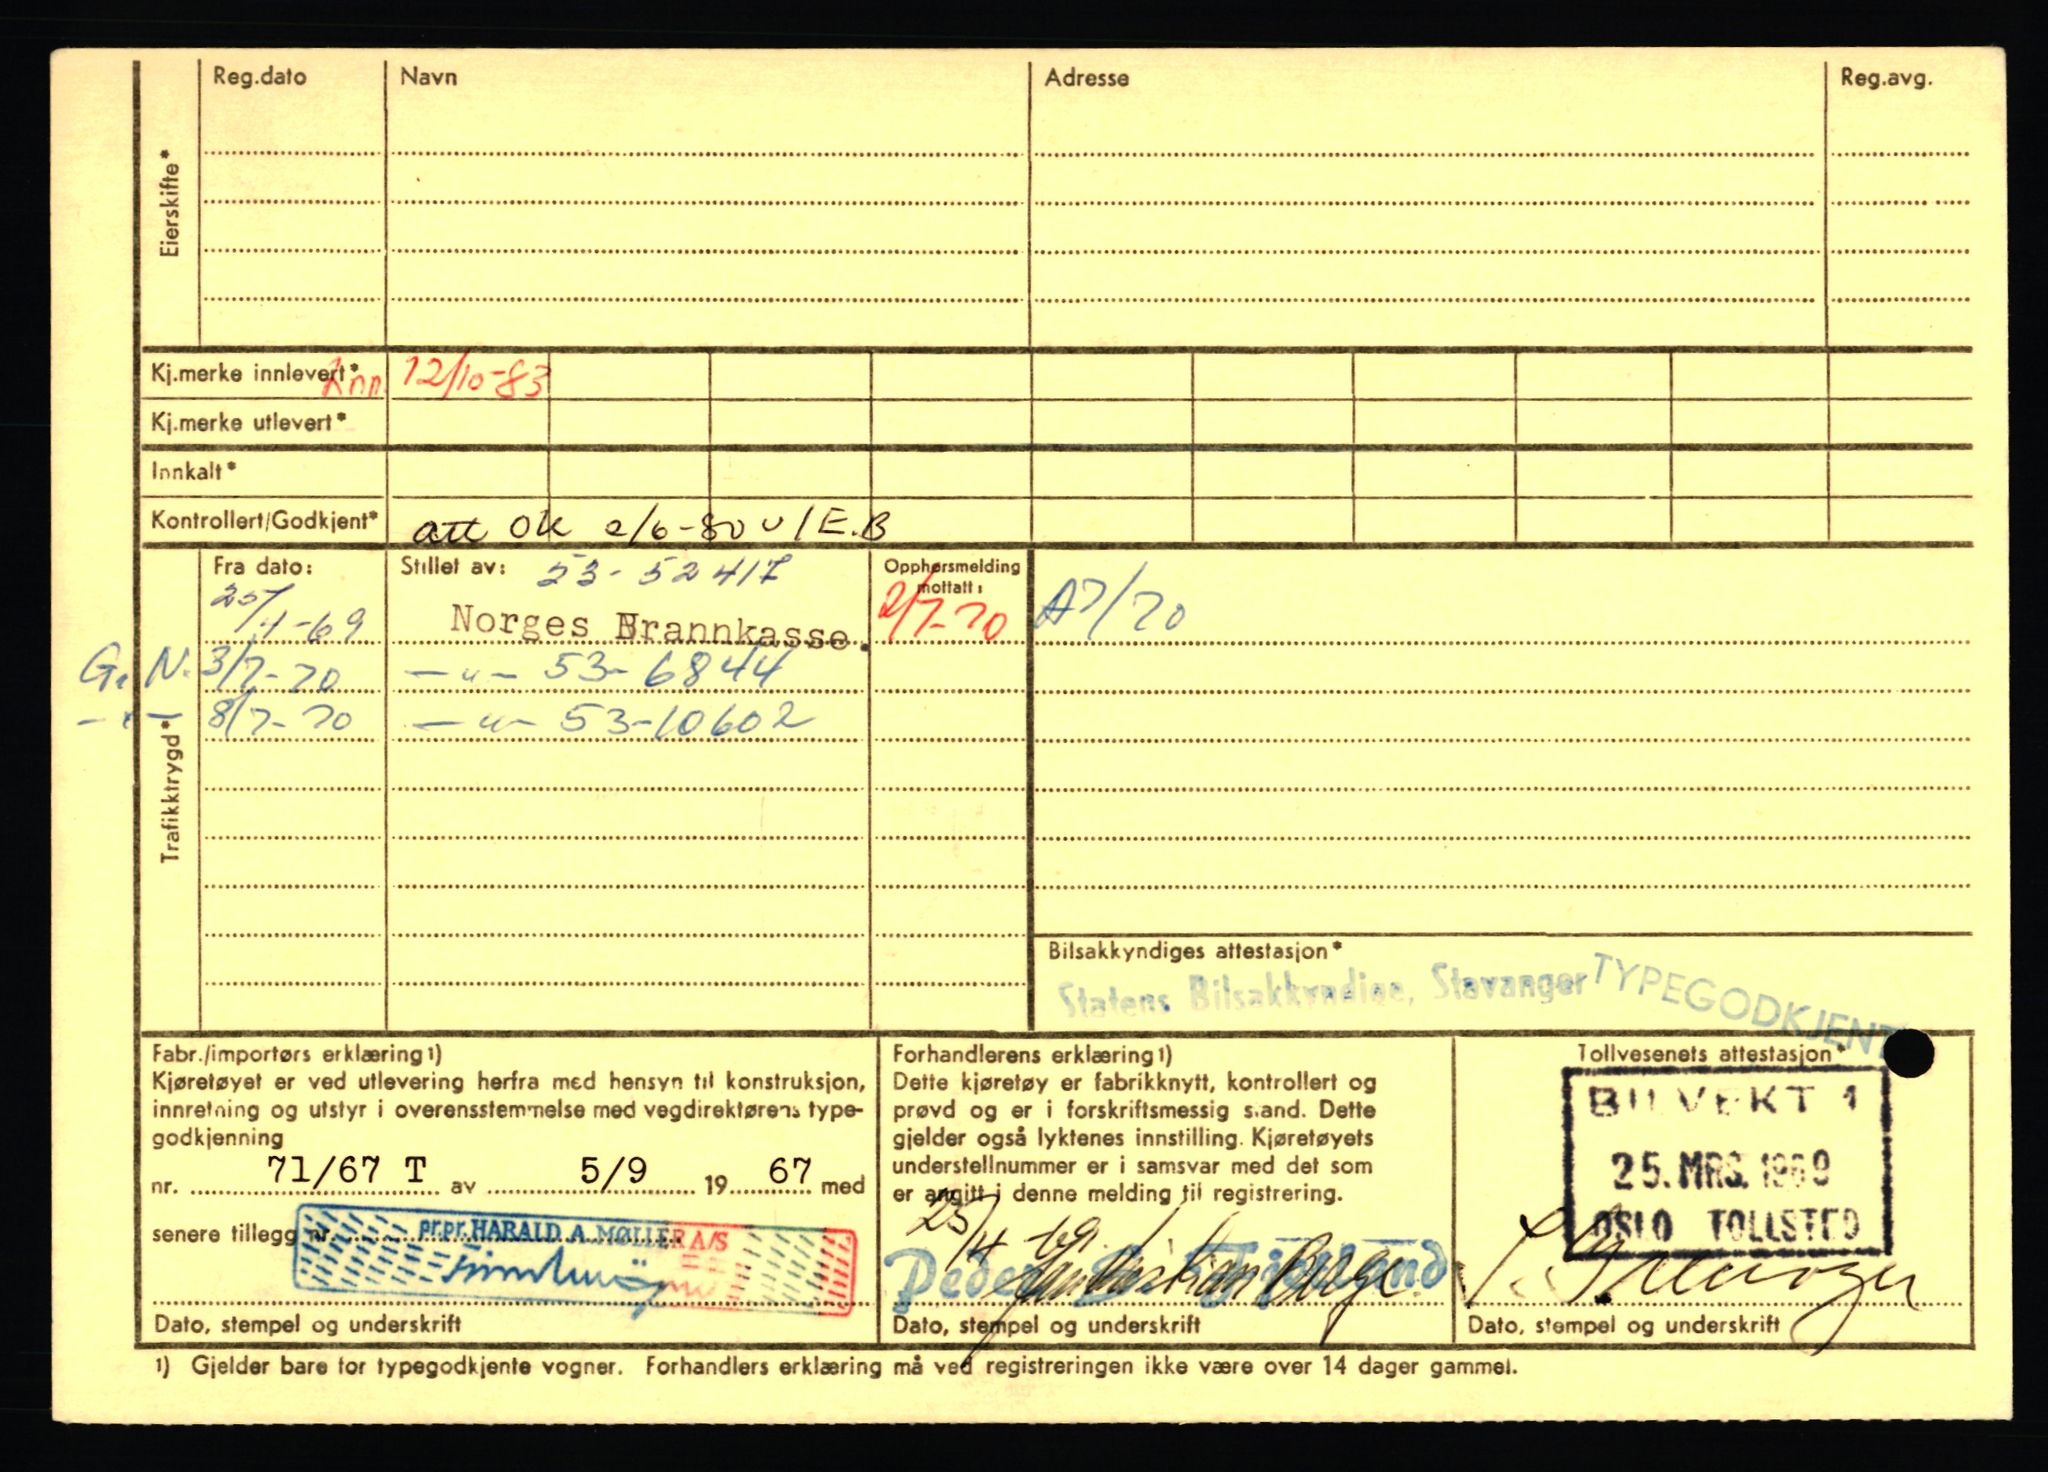 Reg.dato Navn Adresse Reg.avg.
Eierskifte*
Kj.merke innlevert* Inn. 12/10-83
Kj.merke utlevert*
Innkalt*
Kontrollert/Godkjent* att OK 2/6-80 v/E.B
Trafikktrygd*
Fra dato: Stillet av: 53-52417 Opphørsmelding mottatt:
25/4-69 Norges Brannkasse. 2/7-70 A7/70
G.N. 3/7-70 —"— 53-6844
—"— 8/7-70 —"— 53-10602
Bilsakkyndiges attestasjon*
Statens Bilsakkyndige, Stavanger TYPEGODKJENT
Fabr./importørs erklæring1)
Kjøretøyet er ved utlevering herfra med hensyn til konstruksjon,
innretning og utstyr i overensstemmelse med vegdirektørens type-
godkjenning
nr. 71/67 T av 5/9 19 67 med
senere tillegg nr.
pr.pr. HARALD A. MØLLER A/S
Dato, stempel og underskrift
Forhandlerens erklæring1)
Dette kjøretøy er fabrikknytt, kontrollert og
prøvd og er i forskriftsmessig stand. Dette
gjelder også lyktenes innstilling. Kjøretøyets
understellnummer er i samsvar med det som
er angitt i denne melding til registrering.
25/4 -69
Peder
Dato, stempel og underskrift
Tollvesenets attestasjon*
BILVEKT 1
25. MRS. 1969
OSLO TOLLSTED
Dato, stempel og underskrift
1) Gjelder bare for typegodkjente vogner. Forhandlers erklæring må ved registreringen ikke være over 14 dager gammel.